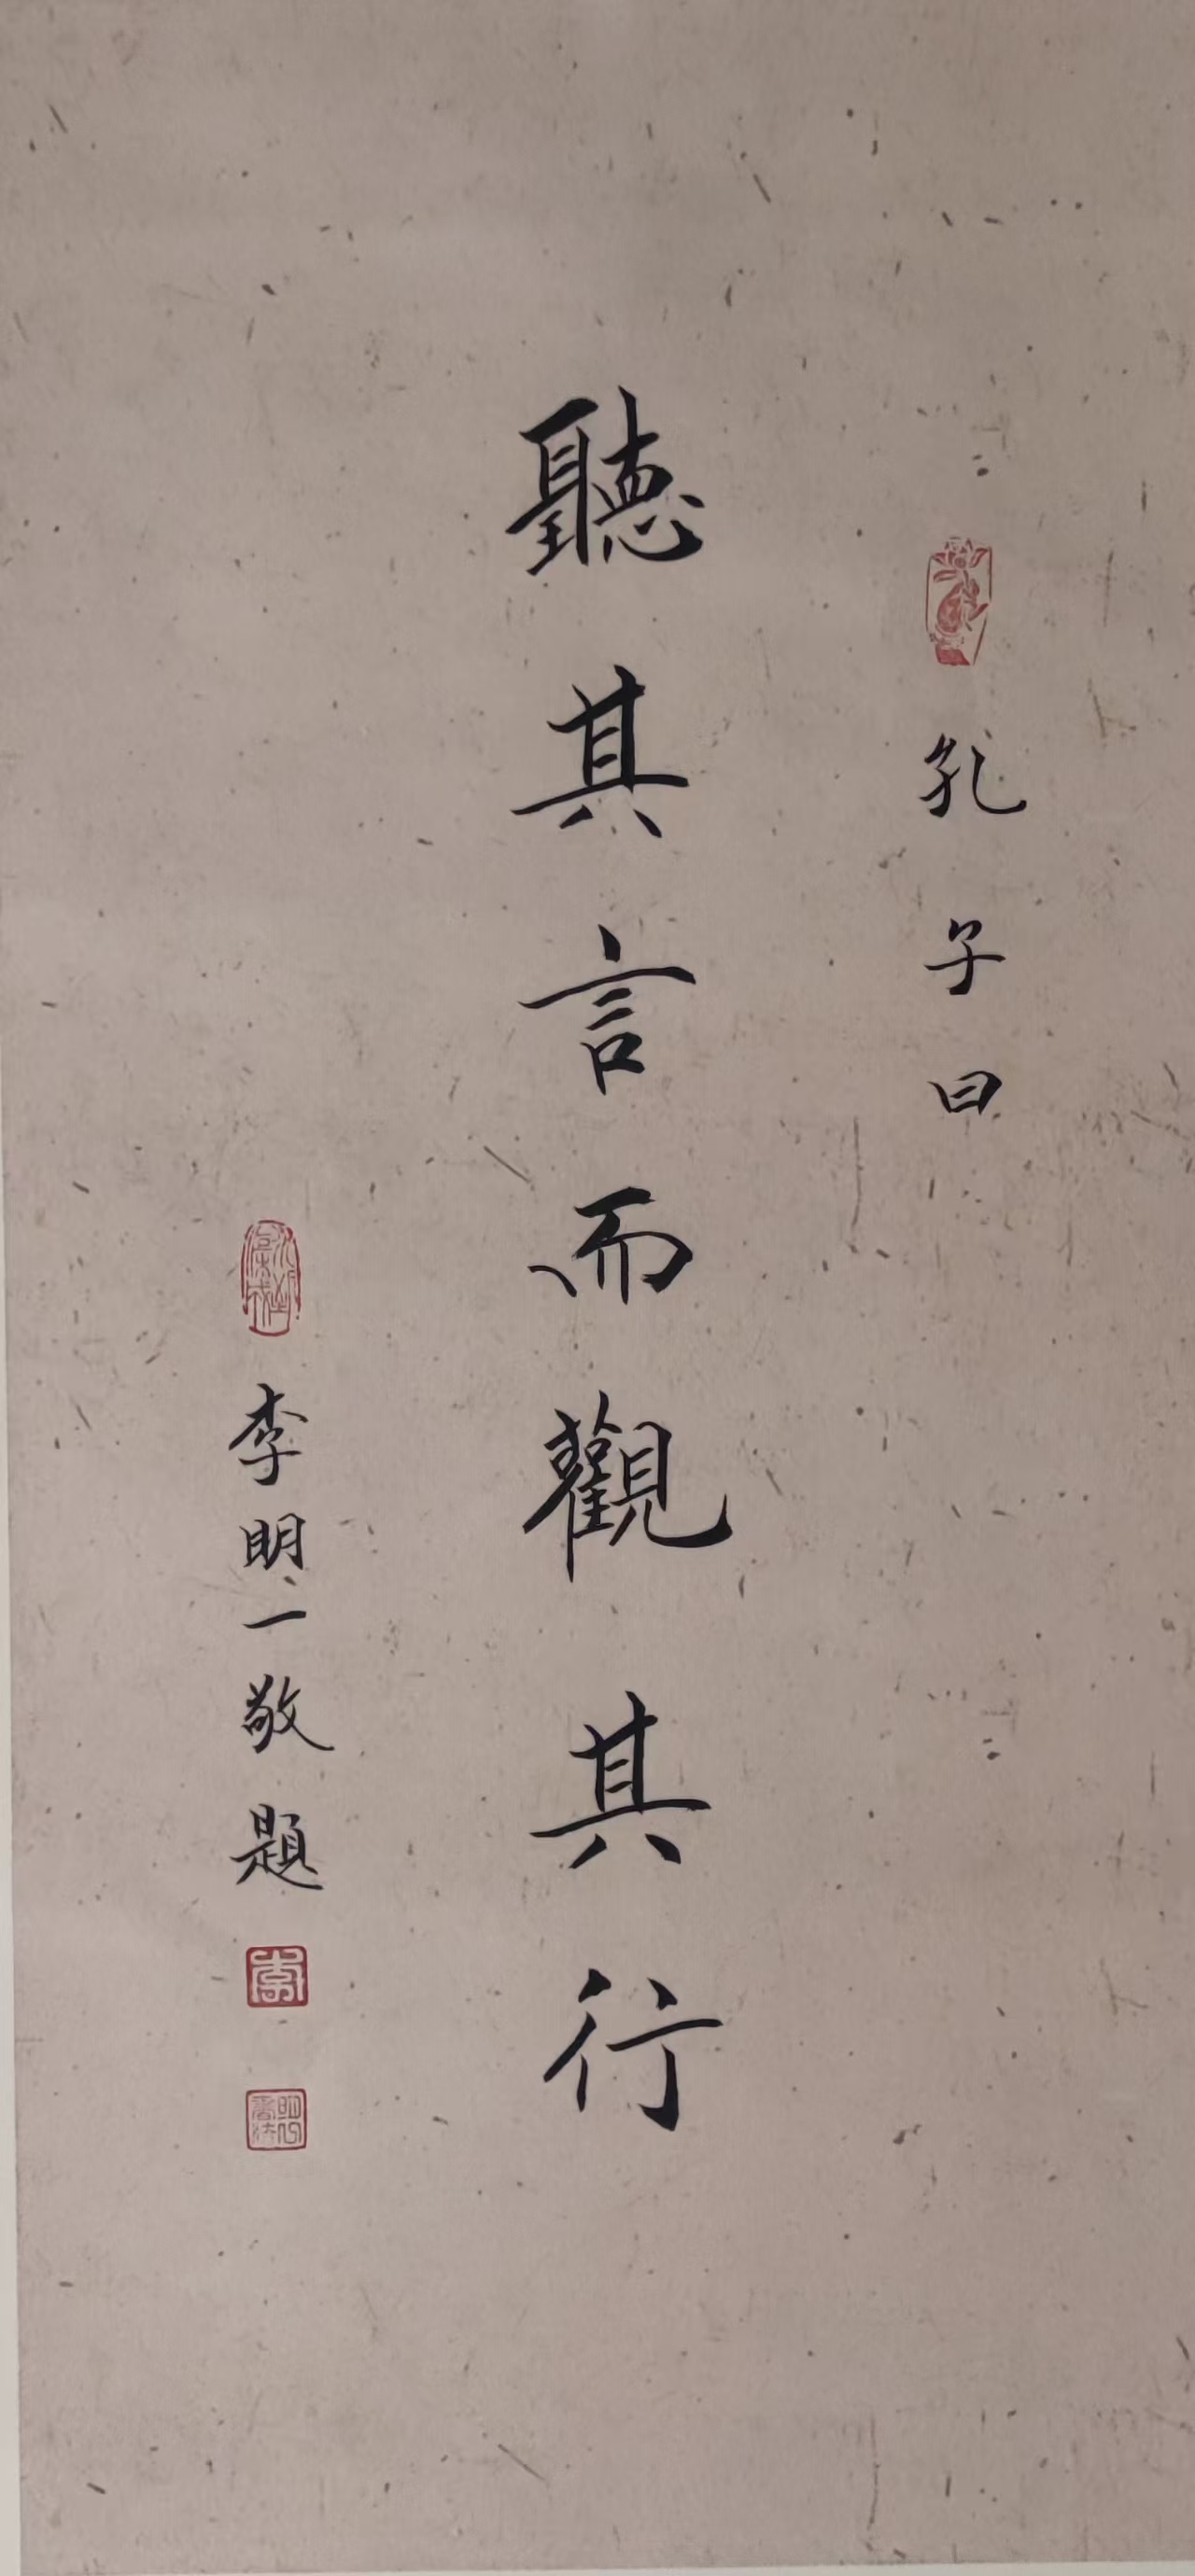 孔子曰
聽其言而觀其行
李明一敬題
李